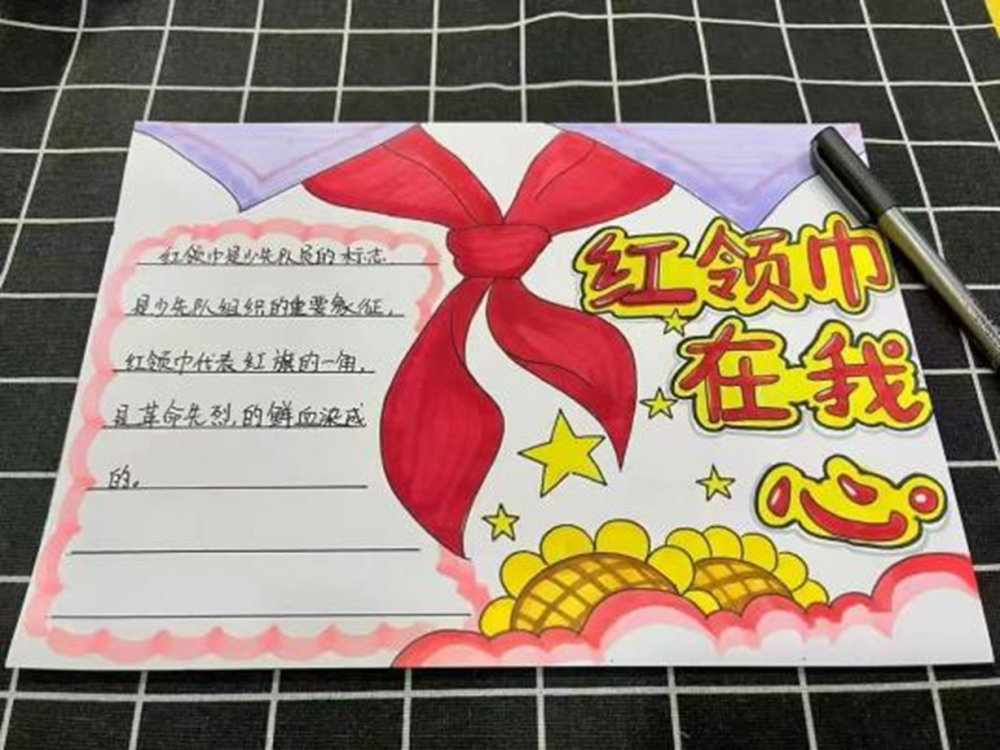 红领巾是少先队员的标志.
是少先队组织的重要象征,
红领巾代表红旗的一角,
是革命先烈,的鲜血染成
的.
红领巾
在我
心